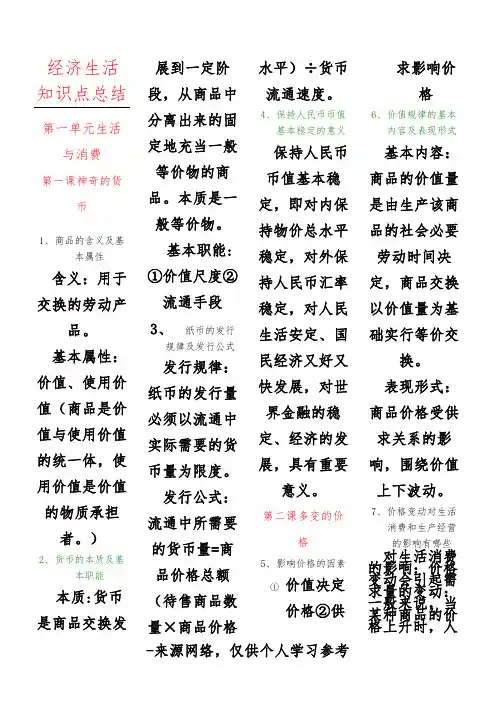 经济生活
知识点总结
第一单元生活
与消费
第一课神奇的货
币
1、商品的含义及基
本属性
含义：用于
交换的劳动产
品。
基本属性：
价值、使用价
值（商品是价
值与使用价值
的统一体，使
用价值是价值
的物质承担
者。）
2、货币的本质及基
本职能
本质:货币
是商品交换发
展到一定阶
段，从商品中
分离出来的固
定地充当一般
等价物的商
品。本质是一
般等价物。
基本职能:
①价值尺度②
流通手段
3、 纸币的发行
规律及发行公式
发行规律：
纸币的发行量
必须以流通中
实际需要的货
币量为限度。
发行公式：
流通中所需要
的货币量=商
品价格总额
（待售商品数
量×商品价格
水平）÷货币
流通速度。
4、保持人民币币值
基本稳定的意义
保持人民币
币值基本稳
定，即对内保
持物价总水平
稳定，对外保
持人民币汇率
稳定，对人民
生活安定、国
民经济又好又
快发展，对世
界金融的稳
定、经济的发
展，具有重要
意义。
第二课多变的价
格
5、影响价格的因素
① 价值决定
价格②供
求影响价
格
6、价值规律的基本
内容及表现形式
基本内容：
商品的价值量
是由生产该商
品的社会必要
劳动时间决
定，商品交换
以价值量为基
础实行等价交
换。
表现形式：
商品价格受供
求关系的影
响，围绕价值
上下波动。
7、价格变动对生活
消费和生产经营
的影响有哪些
对生活消费
的影响：价格
变动会引起需
求量的变动；
一般来说，当
某种商品的价
格上升时，人
-来源网络，仅供个人学习参考